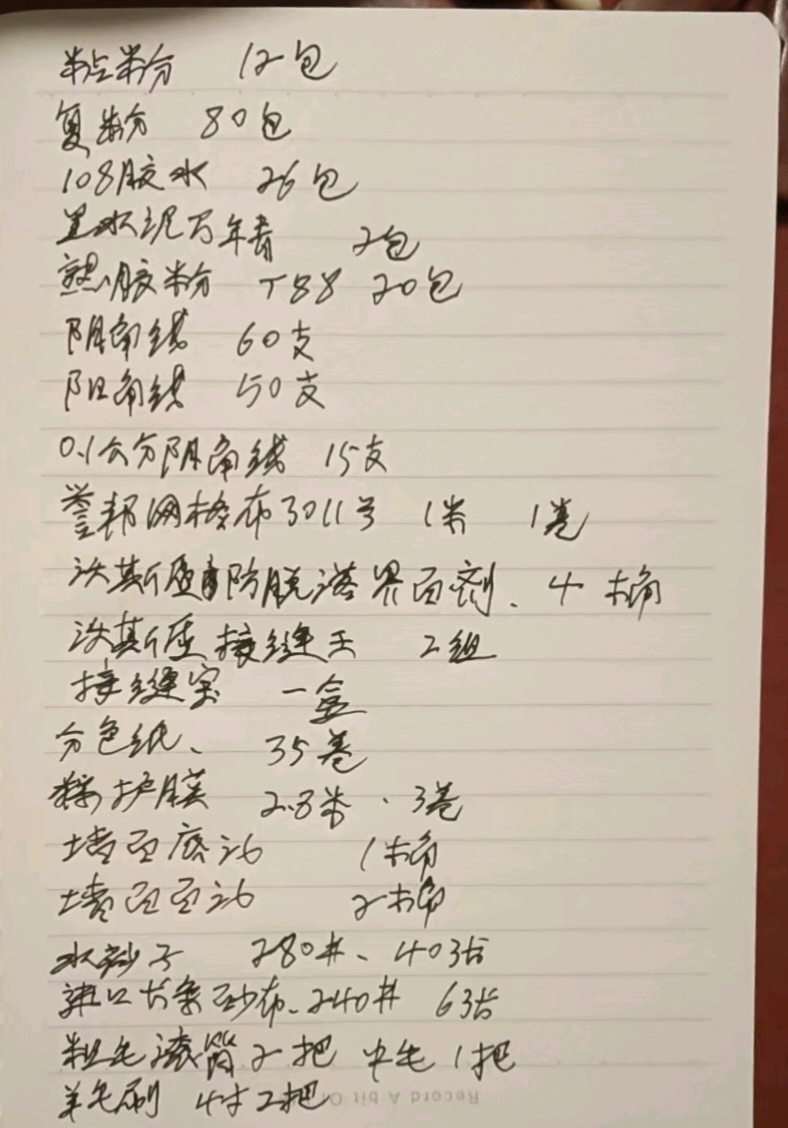 粘粉 12包
复粉 80包
108胶水 26包
黑水泥万年青 2包
熟胶粉 T88 20包
阴角线 60支
阳角线 50支
0.1公分阴角线 15支
誉邦网格布3011号 1米 1卷
沃斯屋防脱落界面剂、4桶
沃斯屋接缝王 2组
接缝宝 一盒
分色纸、 35卷
保护膜 2.8米、3卷
墙面底油 1桶
墙面面油 2桶
水砂子 280#、40张
进口长条砂布、240# 6张
粗毛滚筒2把 中毛1把
羊毛刷 4寸2把
Record A bit O